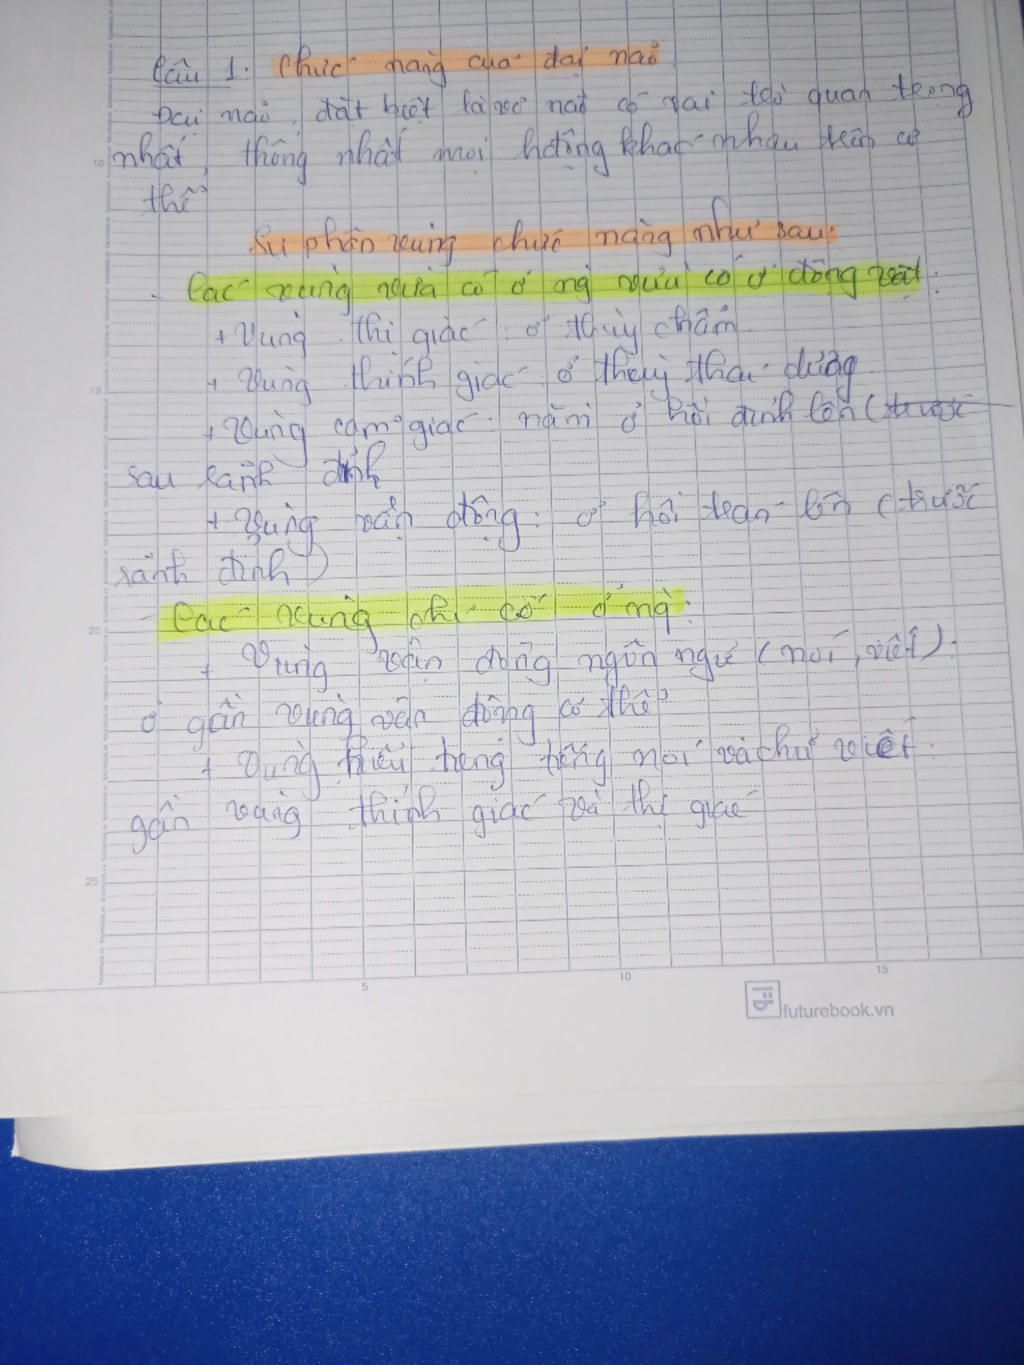 Câu 1. Chức năng của đại não
Đại não, đặt biệt là vỏ não có vai trò quan trọng
10
nhất, thống nhất mọi hđộng khác nhau trên cơ
thể
Sự phân vùng chức năng như sau:
Các vùng vừa có ở ng vừa có ở động vật:
+ Vùng thị giác: ở thùy chẩm
+ Vùng thính giác ở thùy thái dương
15
+ Vùng cảm giác: nằm ở hồi đỉnh lên (trước
sau rãnh đỉnh
+ Vùng vận động: ở hồi trán lên (trước
rãnh đỉnh)
Các vùng chỉ có ở ng:
20
+ Vùng vận động ngôn ngữ (nói, viết):
ở gần vùng vận động cơ thể
+ Vùng hiểu tiếng nói và chữ viết.
gần vùng thính giác và thị giác
25
5 10 15
futurebook.vn